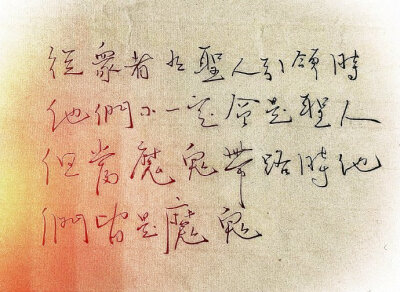 從眾者在聖人引領時
他們不一定會是聖人
但當魔鬼帶路時他
們皆是魔鬼